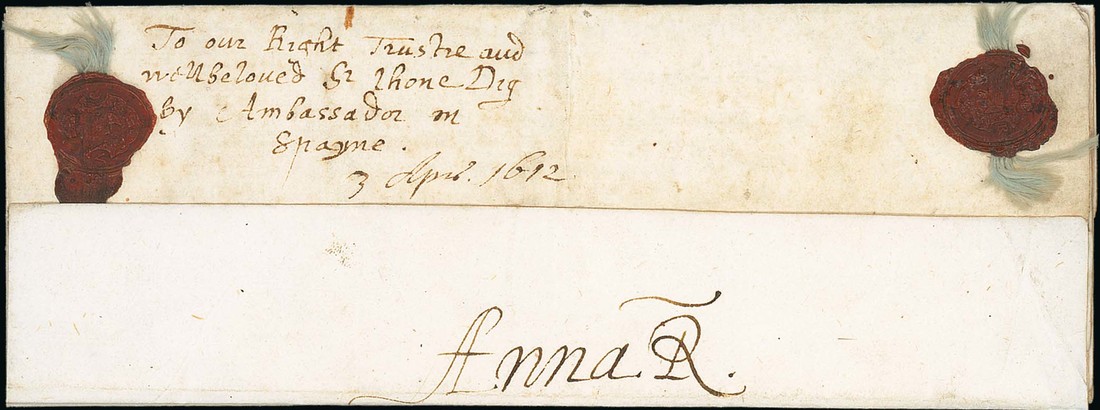 To our Right Trustie and
wellbeloved Sr Jhone Dig
by Ambassador in
Spayne.
3 Apr. 1612
Anna. R.